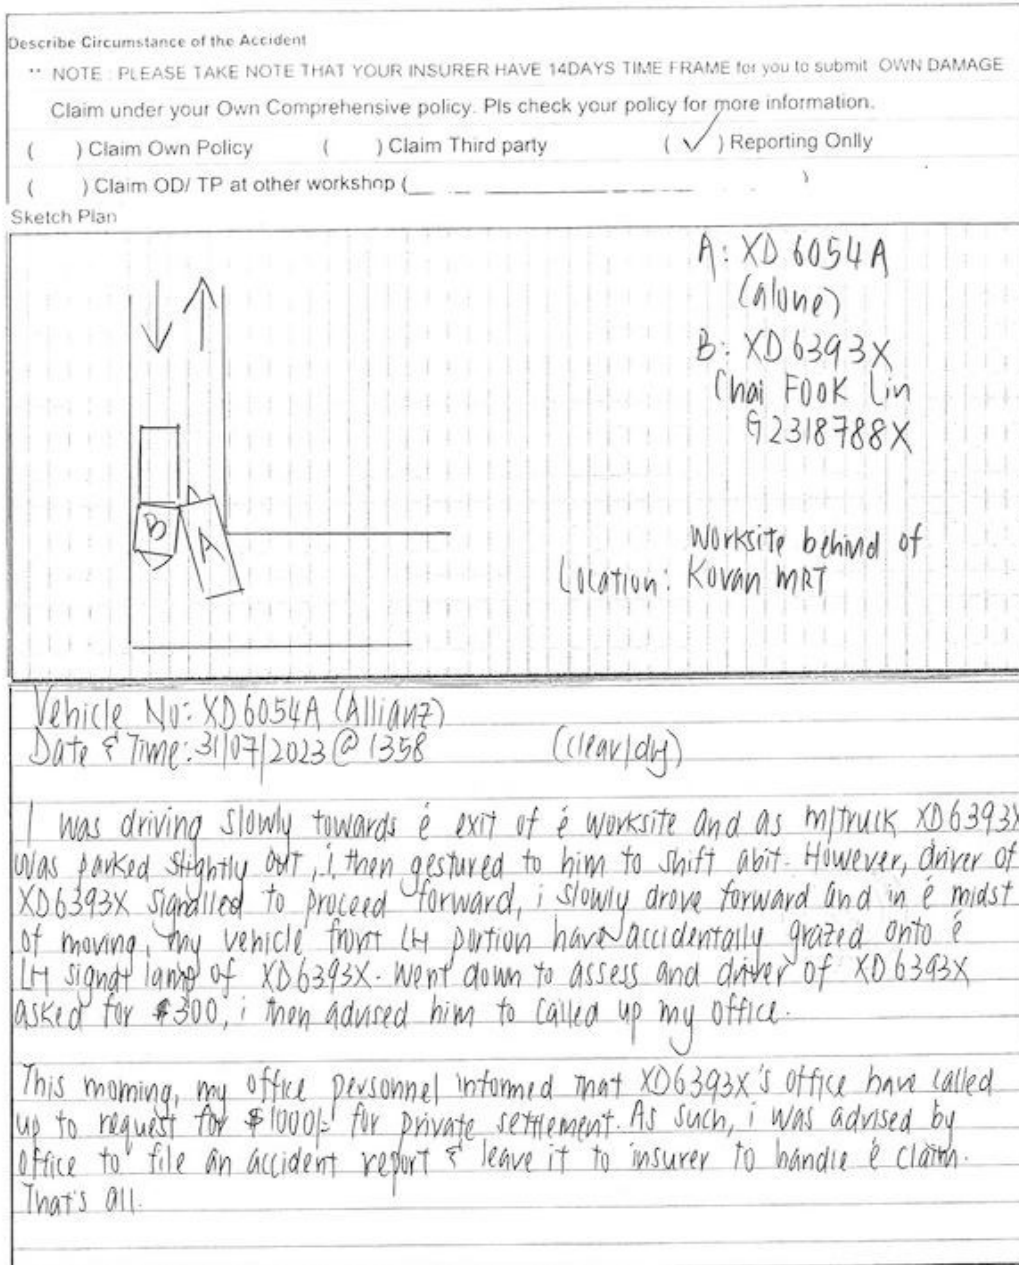 Describe Circumstance of the Accident
** NOTE : PLEASE TAKE NOTE THAT YOUR INSURER HAVE 14DAYS TIME FRAME for you to submit OWN DAMAGE
Claim under your Own Comprehensive policy. Pls check your policy for more information.
( ) Claim Own Policy ( ) Claim Third party ( ✓ ) Reporting Onlly
( ) Claim OD/ TP at other workshop ( )
Sketch Plan
A: XD 6054A
(alone)
B: XD 6393X
Chai Fook Lin
G2318788X
B
A
Worksite behind of
Location: Kovan MRT
Vehicle No: XD6054A (Allianz)
Date & Time: 31/07/2023 @ 1358 (clear/dry)
I was driving slowly towards é exit of é worksite and as m/truck XD6393X
was parked slightly out, i then gestured to him to shift abit. However, driver of
XD6393X signalled to proceed forward, i slowly drove forward and in é midst
of moving, my vehicle front LH portion have accidentally grazed onto é
LH signal lamp of XD6393X. Went down to assess and driver of XD6393X
asked for $300, i then advised him to called up my office.
This morning, my office personnel informed that XD6393X's office have called
up to request for $1000/- for private settlement. As such, i was advised by
office to file an accident report & leave it to insurer to handle é claim.
That's all.